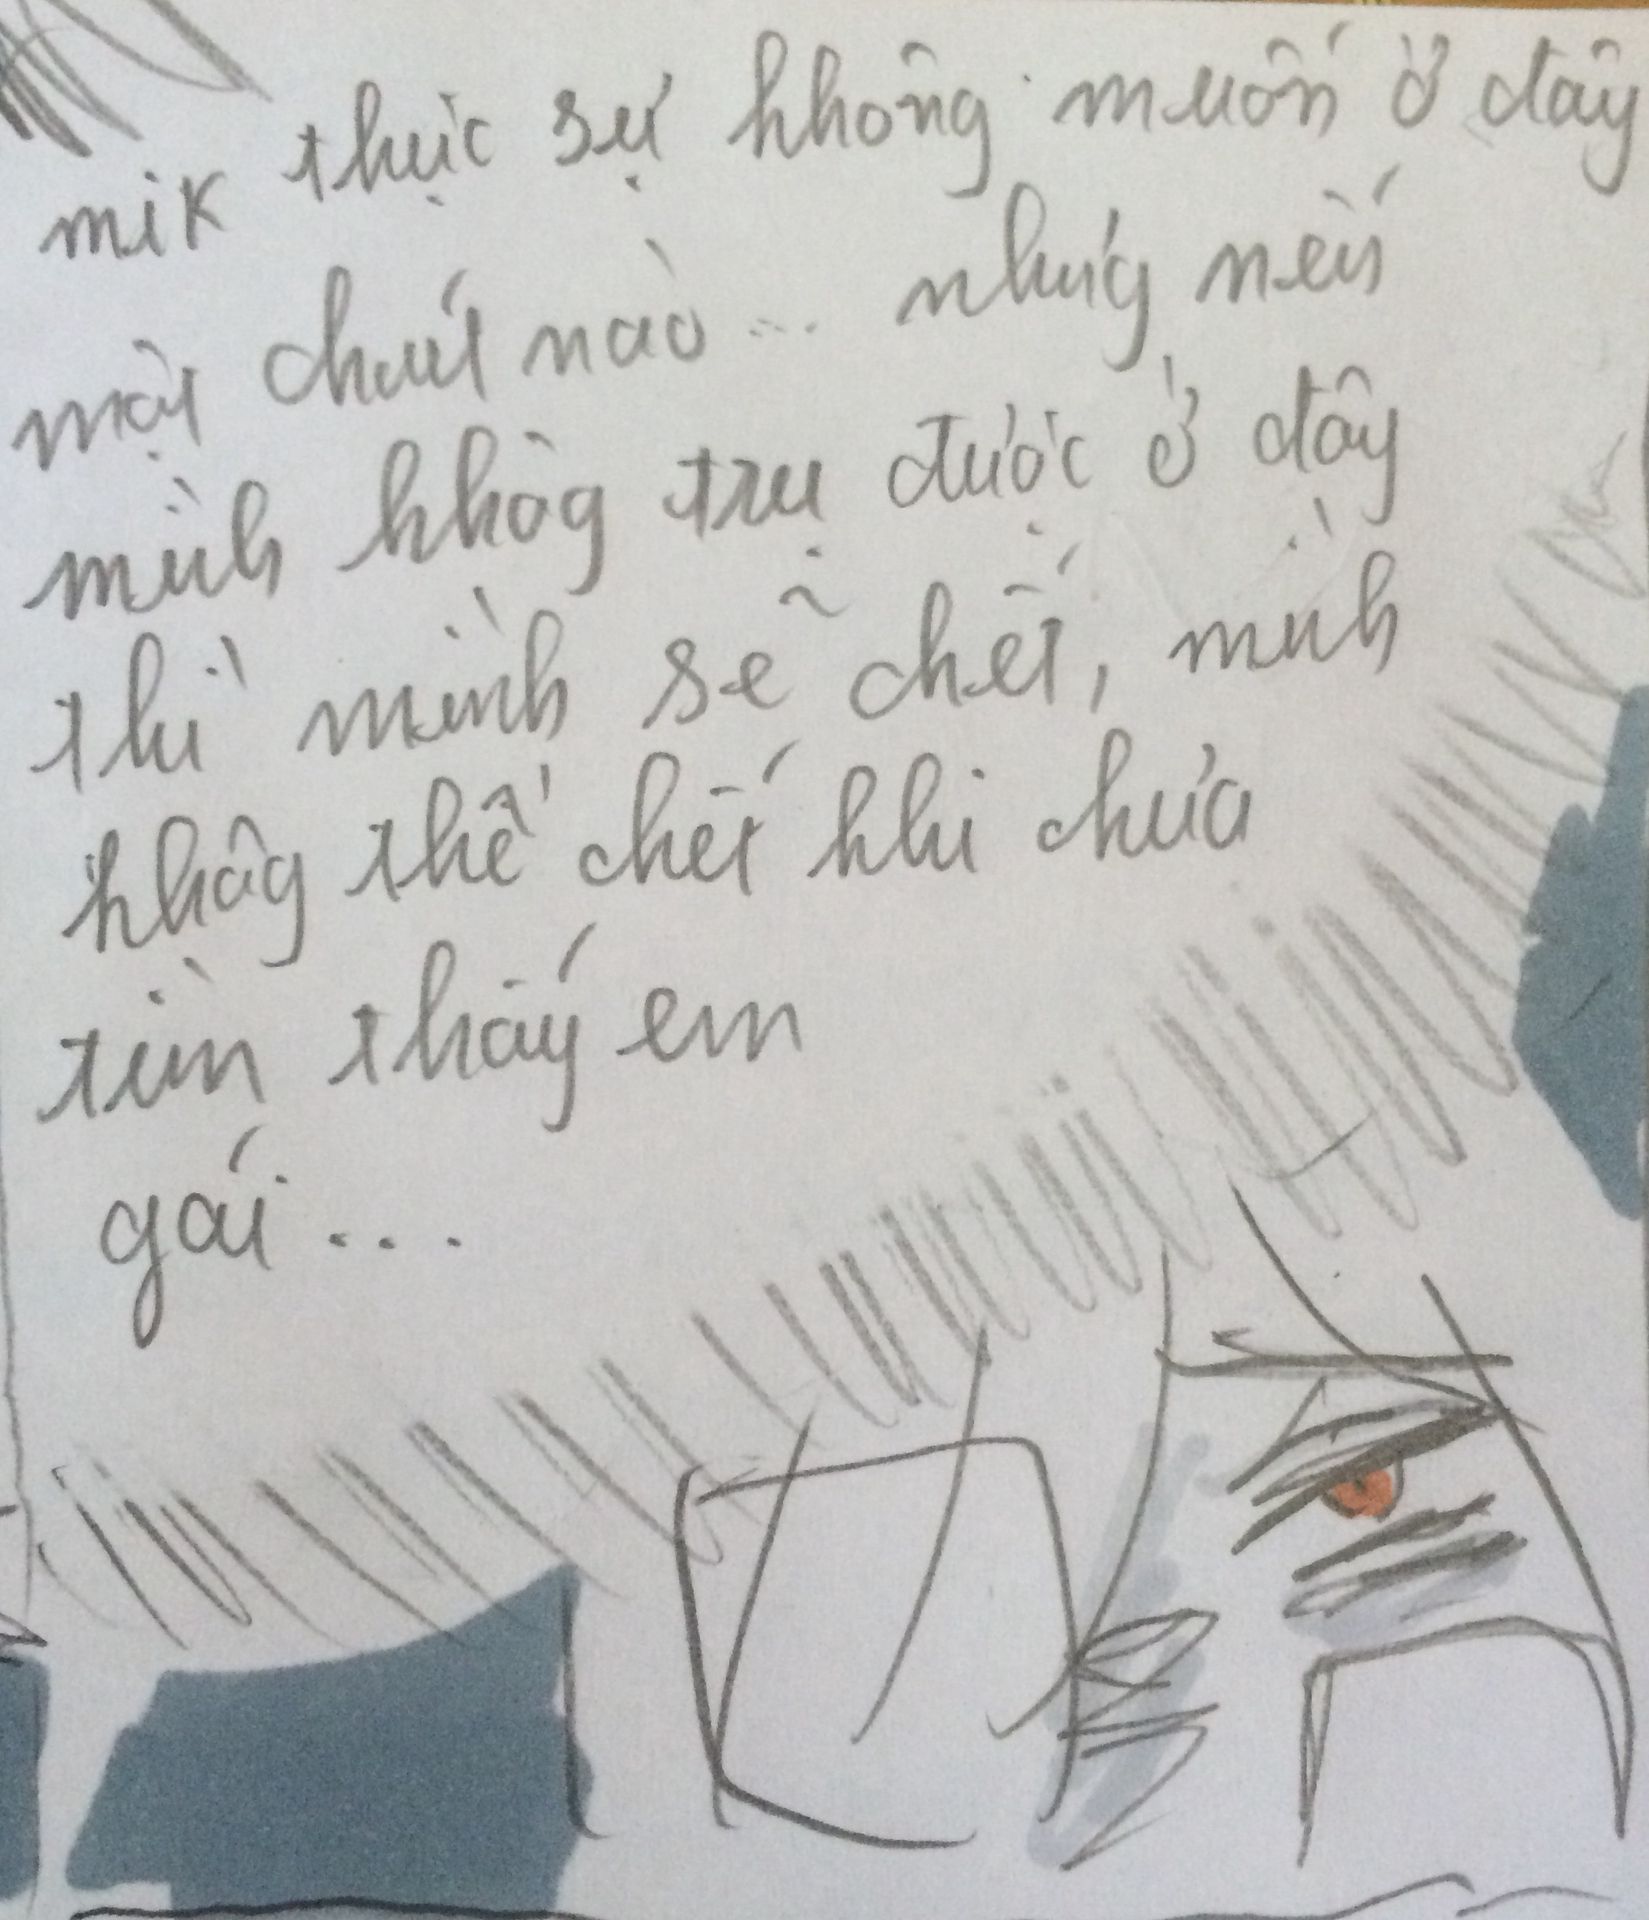 mik thực sự không muốn ở đây
một chút nào... nhưg nếu
mìh khôg trụ được ở đây
thì mình sẽ chết, mìh
khôg thể chết khi chưa
tìm thấy em
gái...